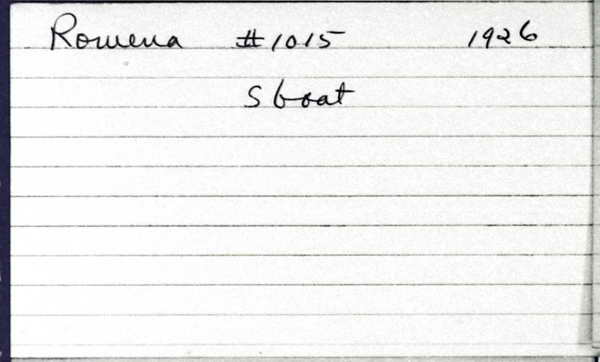 Romena #1015 1926
S boat